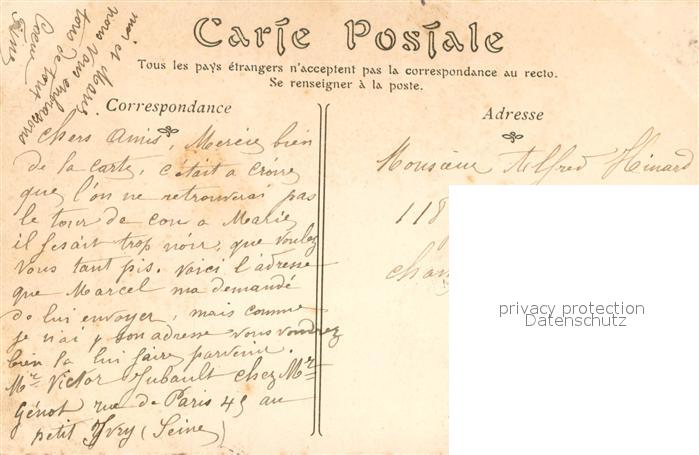 Carte Postale
Tous les pays étrangers n'acceptent pas la correspondance au recto.
Se renseigner à la poste.
Correspondance
Adresse
chers Amis, Mercie bien
de la carte, c'était a croire
que l'on ne retrouverai pas
le tour de cou a Marie,
il fesait trop noir, que voulez
vous tant pis. Voici l'adresse
que Marcel ma demandé
de lui envoyer, mais comme
je n'ai p son adresse vous voudrez
bien la lui faire parvenir.
Mr Victor Jubault chez Mr
Génot rue de Paris 45 au
petit Ivry (Seine)
moi et Marie
nous vous embrassons
tous de tout
Coeur
Monsieur Alfred Hinard
118
privacy protection
Datenschutz